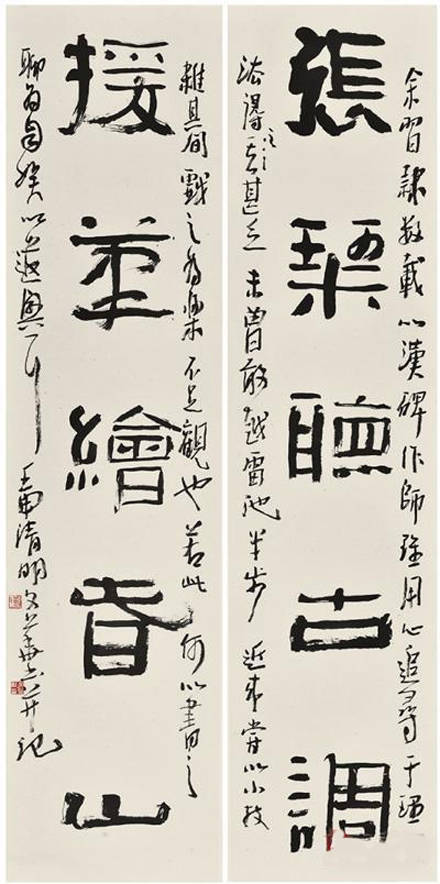 張琴聽古調
余習隸數載以漢碑作師雖用心追尋于
法得甚乏未曾敢越雷池半步近來常以小技
援筆繪春山
雜其間戲之為樂不足觀也若此何以書之
聊為自娛以遣興 清明 并記